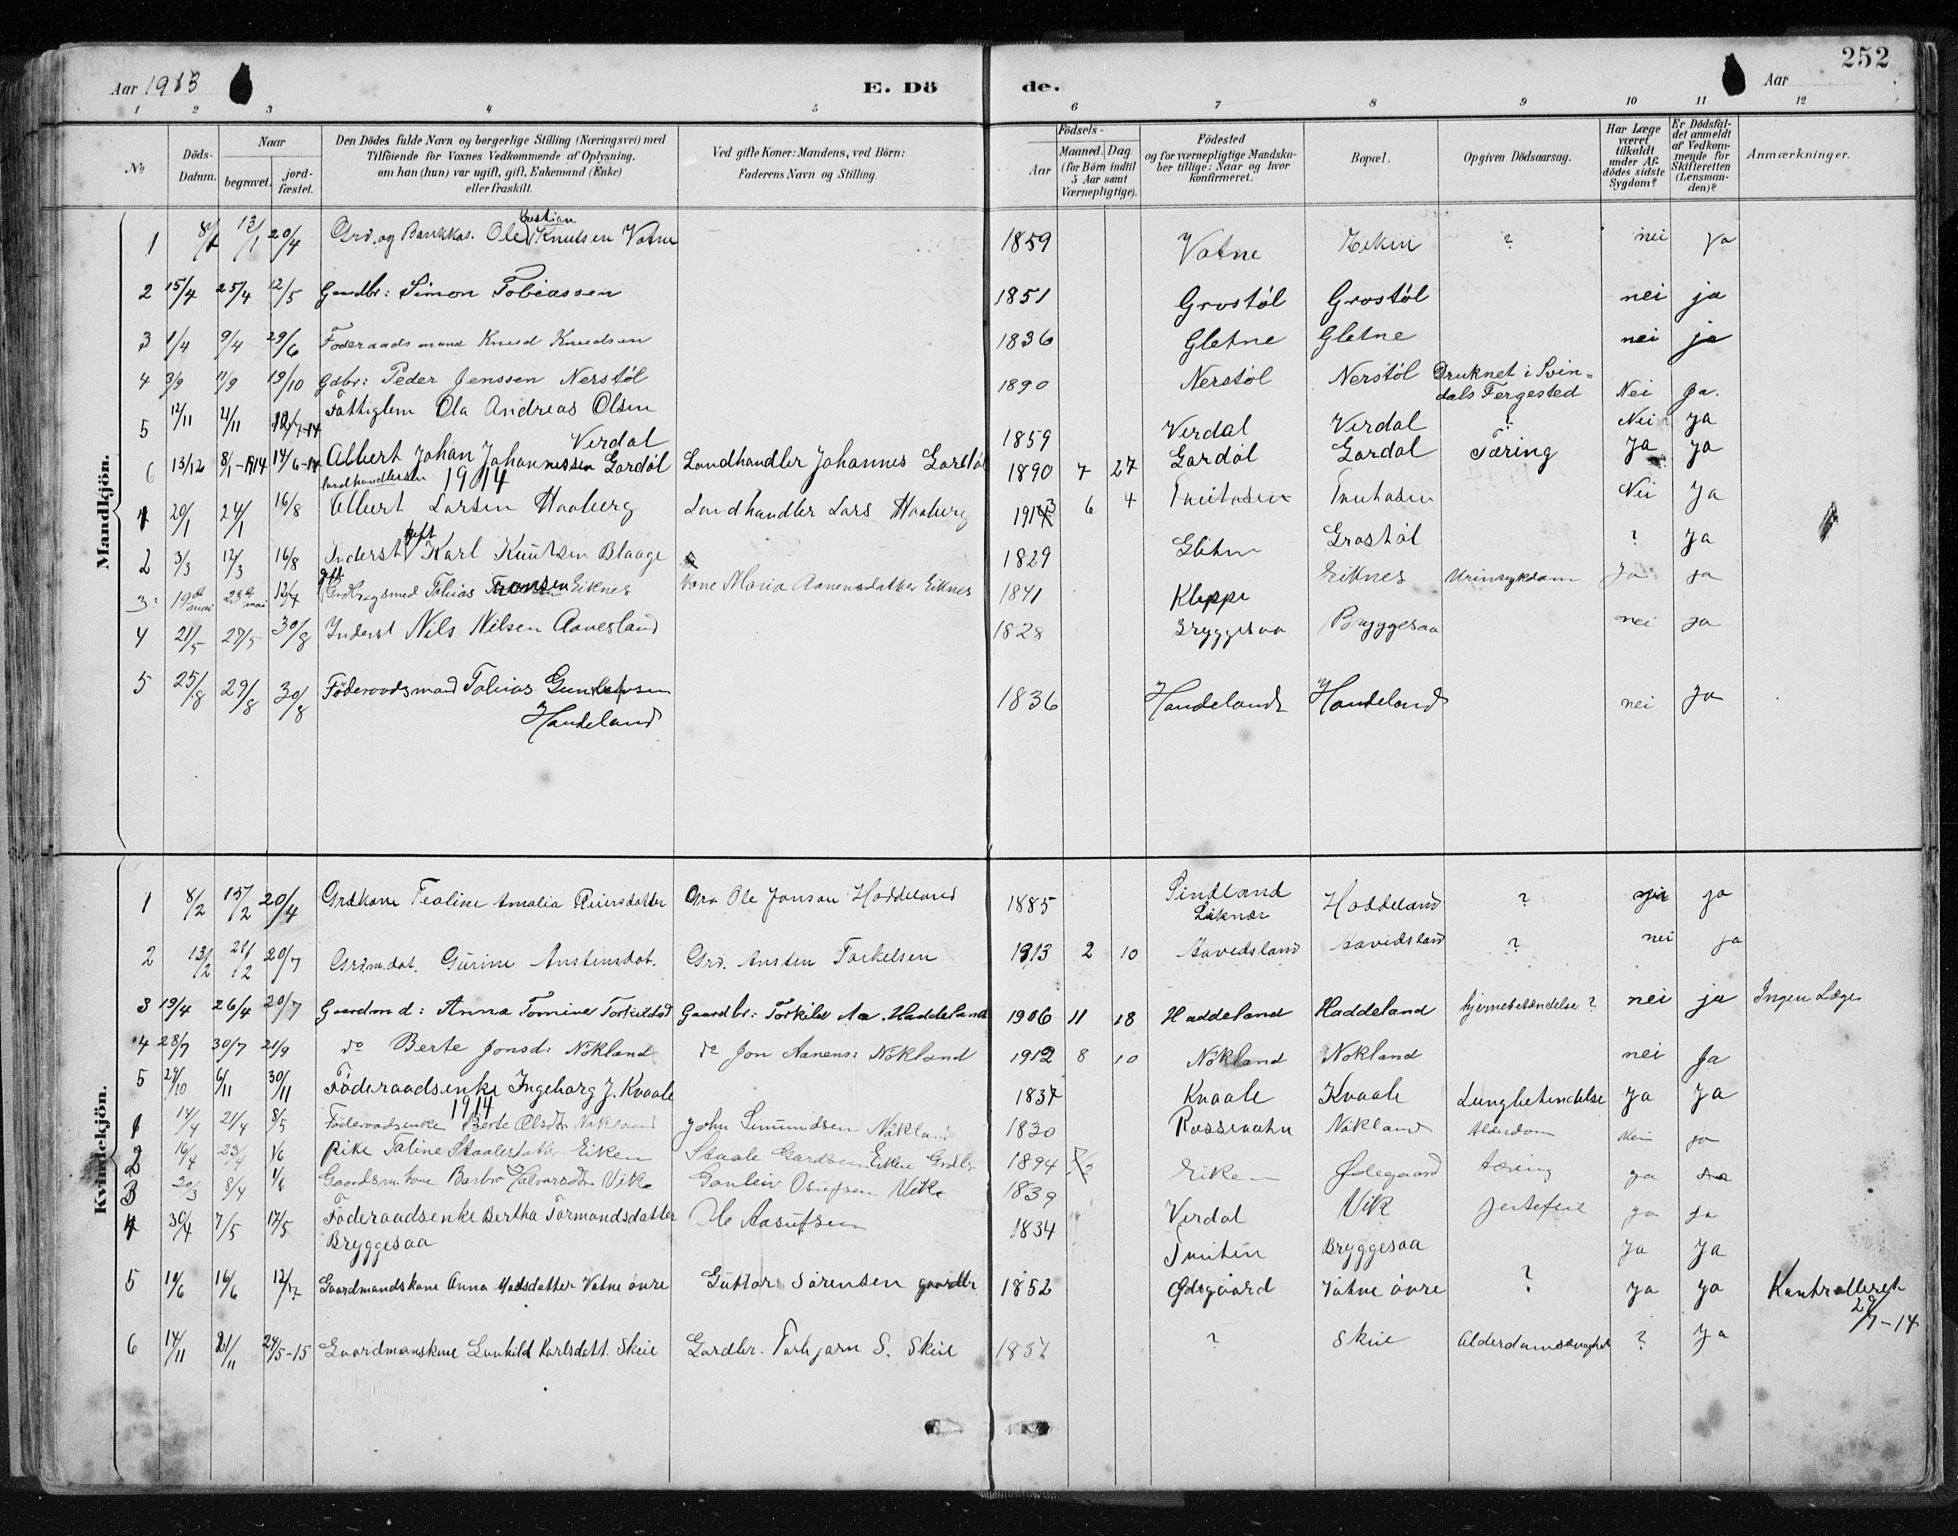 Aar 1913 E. Dö de. Aar 252
1 2 3 4 5 6 7 8 9 10 11 12
No
Döds-Datum.
Naar begravet. jord-fæstet.
Den Dödes fulde Navn og borgerlige Stilling (Næringsvei) med Tilföiende for Voxnes Vedkommende af Oplysning, om han (hun) var ugift, gift, Enkemand (Enke) eller fraskilt.
Ved gifte Koner: Mandens, ved Börn: Faderens Navn og Stilling.
Födsels- Aar Maaned. Dag. (for Börn indtil 5 Aar samt Værnepligtige).
Födested og for værnepligtige Mandska-ber tillige: Naar og hvor konfirmeret.
Bopæl.
Opgiven Dödsaarsag.
Har Læge været tilkaldt under Af-dödes sidste Sygdom?
Er Dödsfal-det anmeldt af Vedkom-mende for Skifteretten (Lensman-den)?
Anmærkninger.
Mandkjön.
1 12/1 20/4 Grd. og Bankkas. Ole Knutsen Vatne 1859 Vatne Eiken ? nei ja
2 15/4 25/4 12/5 Gaardbr: Simon Tobiassen 1851 Grostöl Grostöl nei ja
3 1/4 9/4 29/6 Föderaadsmand Knud Knudsen 1836 Gletne Gletne nei ja
4 3/9 11/9 19/10 Gdbr: Peder Jenssen Nerstöl 1890 Nerstöl Nerstöl Druknet i Svin=
dals Fergested Nei Ja.
5 12/11 21/11 Fattiglem Ola Andreas Olsen
Verdal 1859 Verdal Verdal ? Nei Ja
6 13/12 8/1-1914 14/6-14 Albert Johan Johannessen Gardöl Landhandler Johannes Gardöl 1890 7 27 Gardöl Gardöl Tæring Ja Ja
1914
1 20/1 24/1 16/8 Albert Larsen Haaberg Landhandler Lars Haaberg 6 4 Nei Ja
2 3/3 12/3 16/8 Inderst gift Karl Knutsen Blaage 1829 Gletne Grostöl ? Ja
3 19de mai 23de mai Tobias Eiknes Kone Maria Aanensdatter Eiknes 1841 Kleppe Eiknes Urinsykdom Ja Ja
4 21/5 27/5 30/8 Inderst Nils Nilsen Aavesland 1828 Bryggesaa Bryggesaa nei Ja
5 25/8 29/8 30/8 Föderaadsmand Tobias Gunleifsen
Haudeland 1836 Haudeland Haudeland nei Ja
Kvindekjön.
1 8/2 15/2 20/4 Grdkone Teoline Amalia Reiersdatter Ole Jonson Haddeland 1885 Sindland
Liknes Haddeland ? ja
2 13/2 21/2 20/7 Grdm.dat. Gurine Anstensdat. Grd. Ansten Torkelsen 1913 2 10 Aavidsland Aavidsland ? nei ja
3 19/4 26/4 20/7 Gaardmd: Anna Tomine Torkildsd Gaardbr: Torkild Aa. Haddeland 1906 11 18 Haddeland Haddeland hjernebetændelse? nei ja Ingen Læge
4 28/7 30/7 21/9 do Berte Jonsd: Nökland do Jon Aanens: Nökland 1912 8 10 Nökland Nökland nei Ja
5 29/10 6/11 30/11 Föderaadsenke Ingeborg J. Kvaale 1837 Kvaale Kvaale Lungbetendelse Ja Ja
1914
1 14/4 21/4 8/5 Föderaadsenke Berte Olsdtr Nökland John Simundsen Nökland 1830 Nökland Alderdom Nei ja
2 16/4 23/4 1/6 Pike Taline Staalesdatter Eiken Staale Eiken Grdbr 1894 Eiken Ødegaard tæring ja
3 20/3 8/4 1/6 Gaardsm. kone Barbro Halvorsdtr Vik Gunleiv Osufsen Vik 1839 Verdal Vik hjertefeil ja ja
4 30/4 7/5 17/5 Föderaadsenke Bertha Tormandsdatter
Bryggesaa Ole Aasufsen 1834 Tveiten Bryggesaa Ja Ja
5 16/6 12/7 Gaardmandskone Anna Madsdatter Vatne övre Guttorm Sörensen gaardbr 1852 Ødegaard Vatne övre ? Ja Ja Kontrolleret
29/7-14
6 14/11 21/11 24/5-15 Gaardmanskone Gunhild Karlsdatt. Skeie Gardbr. Torbjørn S. Skeie 1857 ? Skeie Alderdomssvaghet ? Ja